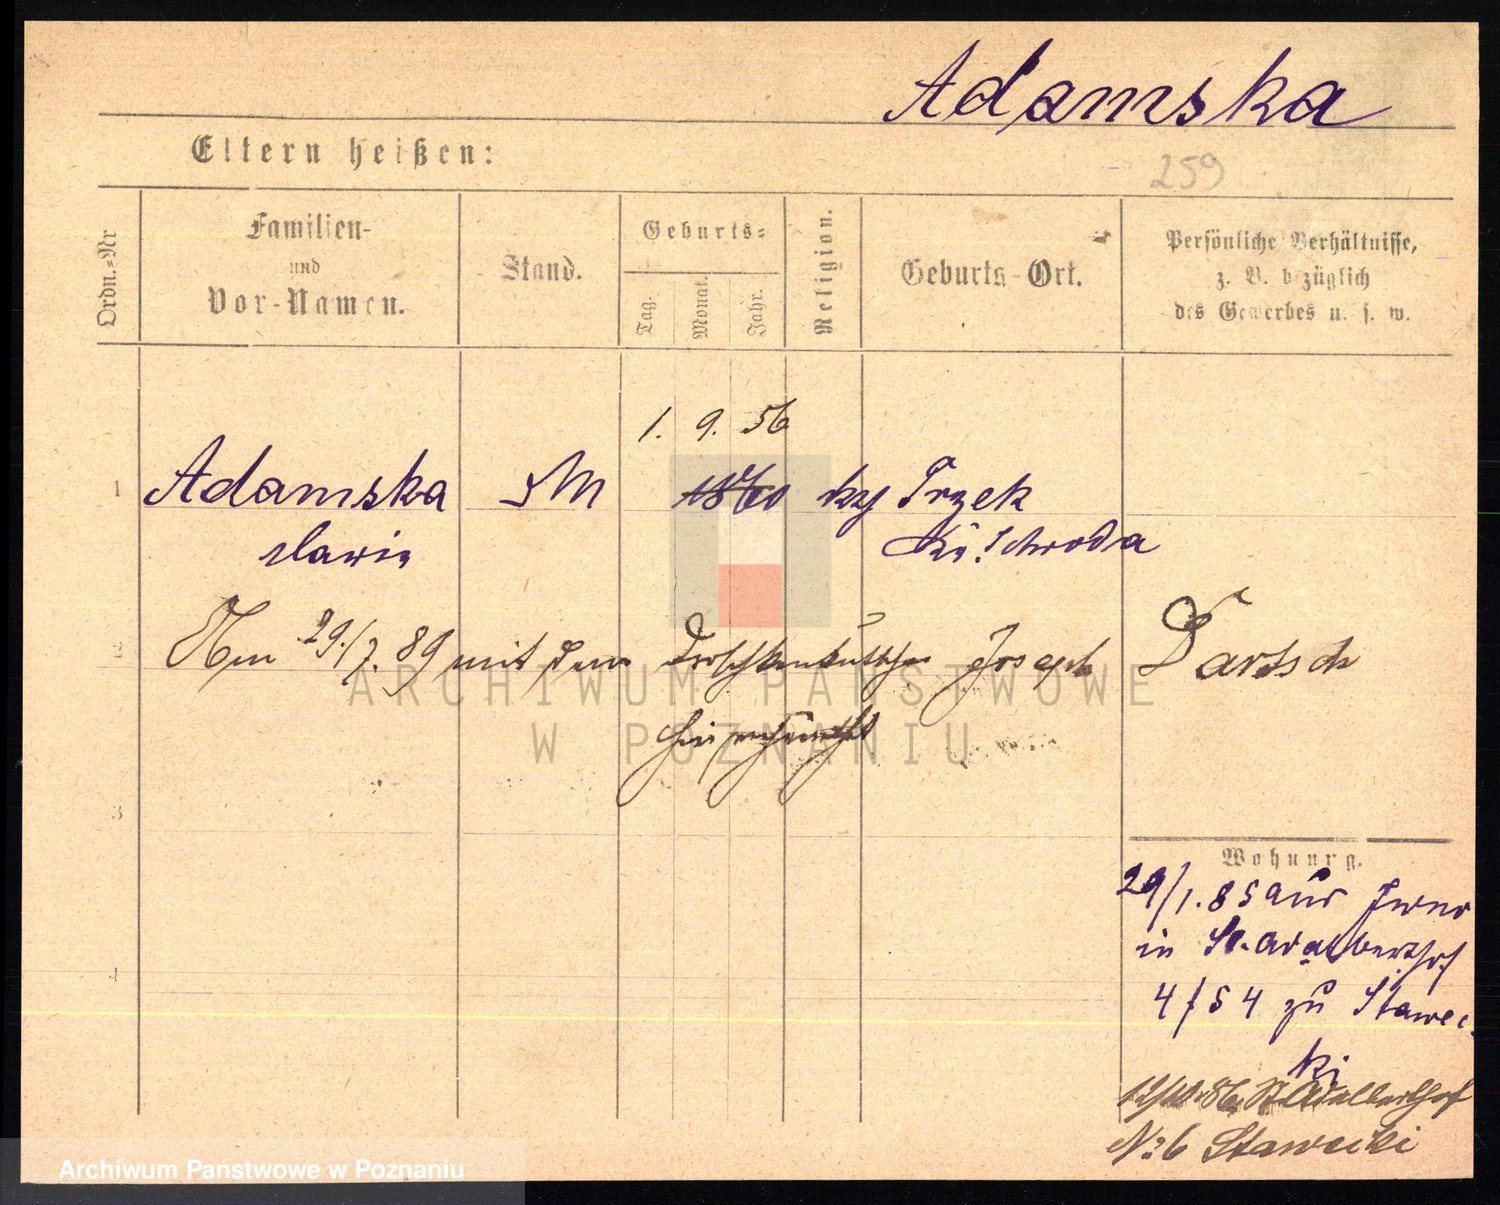 Adamska
Eltern heißen:
259
Ordn.-Nr
Familien-
und
Vor-Namen.
Stand.
Geburts-
Tag.
Monat.
Jahr.
Religion.
Geburts-Ort.
Persönliche Verhältnisse,
z. B. bezüglich
des Gewerbes u. s. w.
1. 9. 56
1 Adamska M 1860 kg Trzek
Maria Kr. Schroda
2 Am 29./7. 89 mit dem Droschkenkutscher Joseph Bartsch
hier
3
Wohnung.
29/1. 85 aus
in St. Adalberthof
4/54 zu Stawec-
ki
4
12/10. 86. St. Adalberthof
No 6 Stawecki
ARCHIWUM PAŃSTWOWE
W POZNANIU
Archiwum Państwowe w Poznaniu